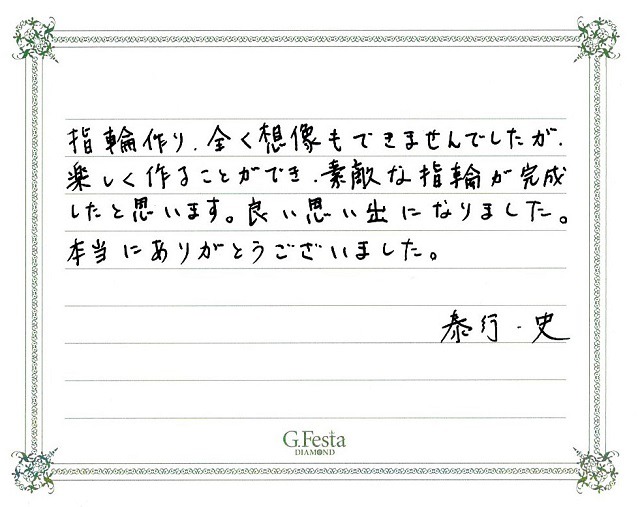 指輪作り、全く想像もできませんでしたが、
楽しく作ることができ、素敵な指輪が完成
したと思います。良い思い出になりました。
本当にありがとうございました。
泰行・史
G.Festa
DIAMOND